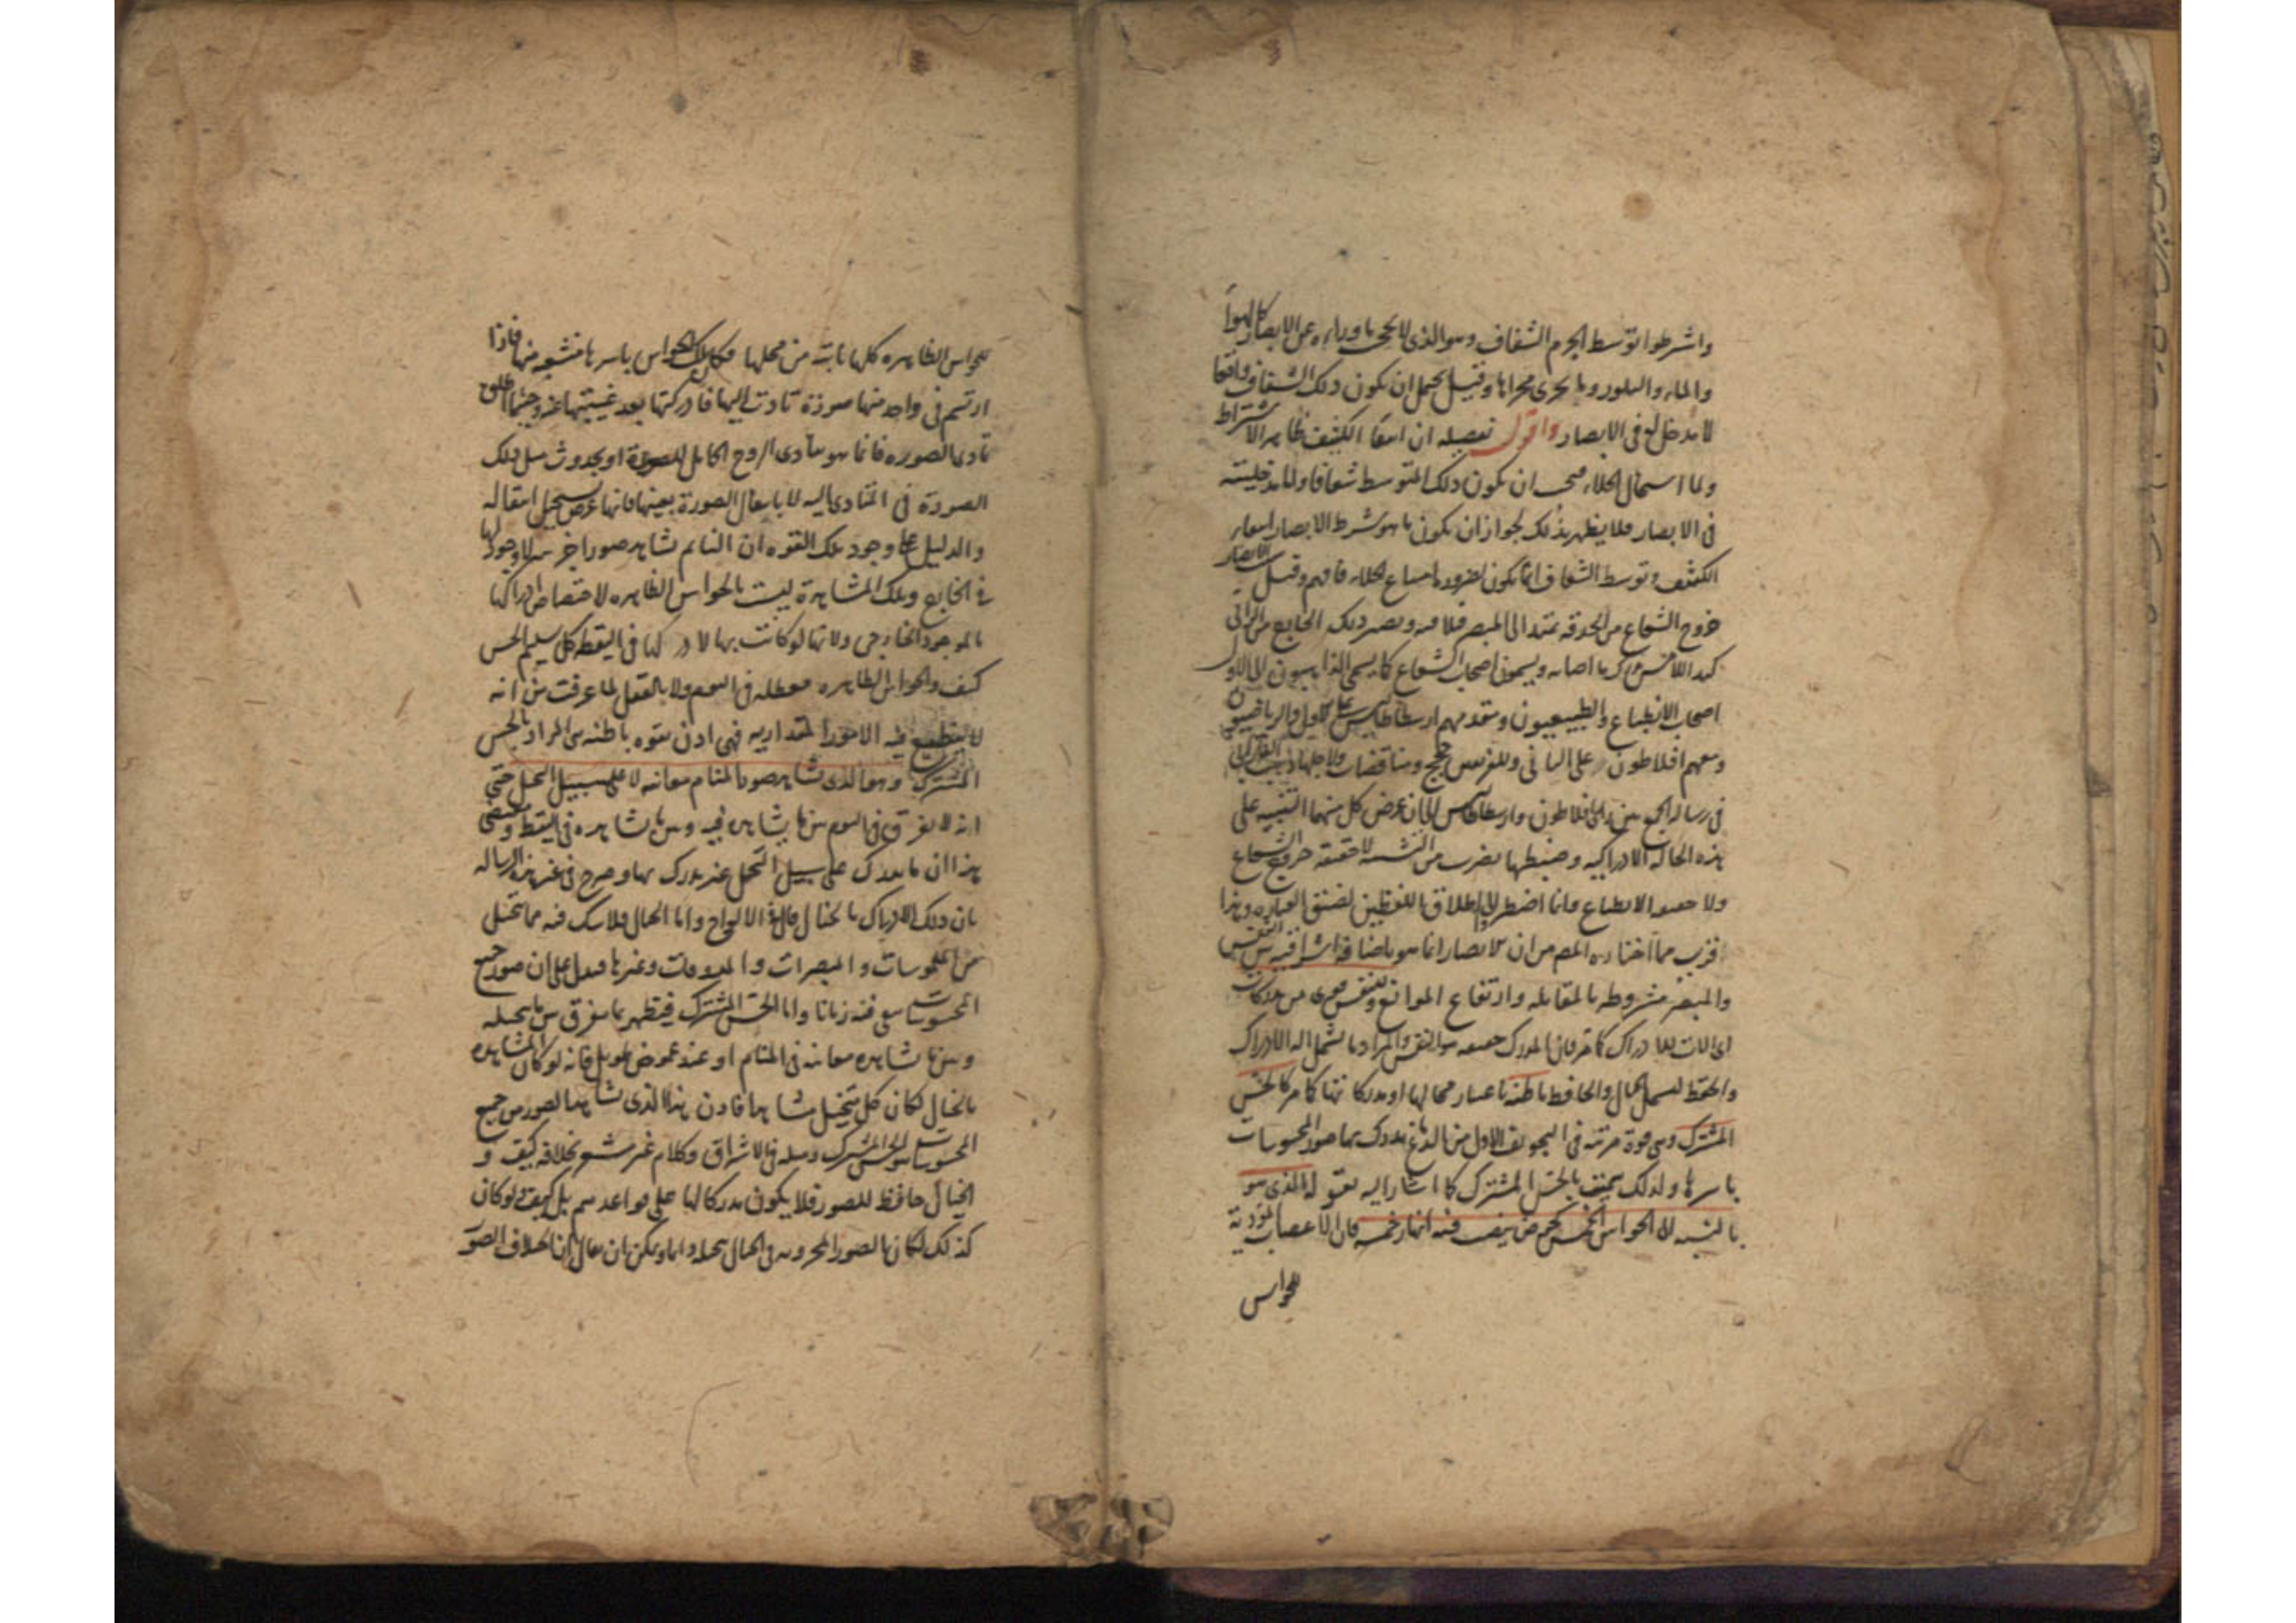 واشترطوا توسط الجرم الشفاف وهو الذى لا يحجب ما وراءه عن الابصار كالهواء
والماء والبلور وما يجرى مجراها وقيل يحتمل ان يكون ذلك الشفاف واقعا
لا مدخل له فى الابصار واقول تفصيله ان انتفاء الكثيف ظاهر الاشتراط
ولما استحال الخلاء فيجب ان يكون ذلك المتوسط شفافا واما مدخليته
فى الابصار فلا يظهر بذلك لجواز ان يكون ما هو شرط الابصار انتفاء
الكثيف وتوسط الشفاف انما يكون لضرورة امتناع الخلاء فافهم وقيل الابصار
خروج الشعاع من الحدقة يمتد الى المبصر فيلاقيه ويصير ذلك الخارج من الرائى
كيد اللامس يدرك ما اصابه ويسمون اصحاب الشعاع كما يسمى الذاهبون الى الاول
اصحاب الانطباع والطبيعيون ومقدمهم ارسطاطاليس على الاول والرياضيون
ومعهم افلاطون على الثانى وللفريقين حجج ومناقضات ولاجلها ذهب الفارابى
فى رسالة الجمع بين رأى افلاطون وارسطاطاليس الى ان غرض كل منهما التنبيه على
هذه الحالة الادراكية وضبطها بضرب من التشبيه لا حقيقة خروج الشعاع
ولا حقيقة الانطباع وانما اضطروا الى اطلاق اللفظين لضيق العبارة وهذا
قريب مما اختاره المصـ من ان الابصار انما هو باضافة اشراقية بين النفس
والمبصر مشروطة بالمقابلة وارتفاع الموانع وللنفس قوى من مدركات
اى الات للادراك كما مر فان المدرك حقيقة هو النفس والمراد ما يشمل الة الادراك
والحفظ ليشمل الخيال والحافظة باطنة باعتبار محالها او مدركاتها كما مر كالحس
المشترك وهى قوة مرتبة فى التجويف الاول من الدماغ يدرك بها صور المحسوسات
باسرها ولذلك سميت بالحس المشترك كما اشار اليه بقوله الذى هو
بالنسبة الى الحواس الخمس كحوض ينصب فيه انهار خمسة فان الاعصاب المؤدية
للحواس
للحواس الظاهره كلها نابتة من محلها فكان تلك الحواس باسرها منشعبة منها فاذا
ارتسم فى واحد منها صورة تادت اليها فادركتها بعد غيبتها عنه وحيثما اطلق
تادى الصورة فانما هو بتادى الروح الحامل للصورة او بحدوث مثل تلك
الصورة فى المتادى اليه لا بانتقال الصورة بعينها فانها عرض يستحيل انتقاله
والدليل على وجود تلك القوة ان النائم يشاهد صورا جزئية لا وجود لها
فى الخارج وتلك المشاهدة ليست بالحواس الظاهرة لاختصاص ادراكها
بالموجود الخارجى ولانها لو كانت بها لادركها فى اليقظة كل سليم الحس
كيف والحواس الظاهره معطلة فى النوم ولا بالعقل لما عرفت من انه
لا ينطبع فيه الامور المقدارية فهى اذن بقوة باطنة هى المراد بالحس
المشترك وهو الذى يشاهد صور المنام معاينة لا على سبيل التخيل حتى
انه لا يفرق فى النوم بين ما يشاهده فيه وبين ما يشاهده فى اليقظة ومقتضى
هذا ان ما يدرك على سبيل التخيل غير مدرك بها وصرح فى غير هذه الرسالة
بان ذلك الادراك بالخيال قال فى الالواح واما الخيال فلا شك فيه مما تتخيل
من الملموسات والمبصرات والمذوقات وغيرها فيدل على ان صور جميع
المحسوسات تبقى فيه زمانا واما الحس المشترك فيظهر بما يفرق بين ما يتخيله
وبين ما يشاهده معاينة فى المنام او عند غموض طويل فانه لو كان المشاهدة
بالخيال لكان كل متخيل مشاهدا فاذن هذا الذى يشاهد الصور من جميع
المحسوسات هو الحس المشترك ومثله فى الاشراق وكلام غيره مشعر بخلافه كيف و
الخيال حافظ للصور فلا يكون مدركا لها على قواعدهم بل كيف ولو كان
كذلك لكان الصور المخزونة فى الخيال متخيلة دائما ويمكن ان يقال ان اختلاف الصور